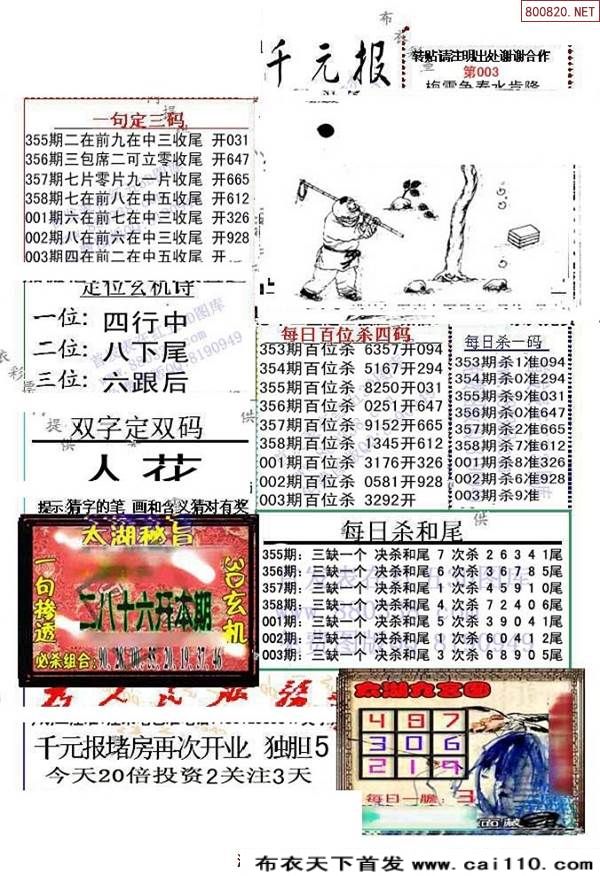 800820.NET
千元报
转贴请注明出处谢谢合作
第003
梅雪争春水肯降
一句定三码
355期二在前九在中三收尾 开031
356期三包席二可立零收尾 开647
357期七片零片九一片收尾 开665
358期七在前八在中五收尾 开612
001期六在前七在中三收尾 开326
002期八在前六在中三收尾 开928
003期四在前二在中五收尾 开
定位玄机诗
一位: 四行中
二位: 八下尾
三位: 六跟后
每日百位杀四码
353期百位杀 6357开094
354期百位杀 5167开294
355期百位杀 8250开031
356期百位杀 0251开647
357期百位杀 9152开665
358期百位杀 1345开612
001期百位杀 3176开326
002期百位杀 0581开928
003期百位杀 3292开
每日杀一码
353期杀1准094
354期杀0准294
355期杀9准031
356期杀0准647
357期杀2准665
358期杀7准612
001期杀8准326
002期杀0准928
003期杀9准
双字定双码
人花
提示:猜字的笔 画和含义猜对有奖
太湖秘旨
一句掺透
3D玄机
二八十六开本期
必杀组合:
每日杀和尾
355期: 三缺一个 决杀和尾 7 次杀 2 6 3 4 1尾
356期: 三缺一个 决杀和尾 3 次杀 6 1 7 8 5尾
357期: 三缺一个 决杀和尾 1 次杀 4 5 9 1 0尾
358期: 三缺一个 决杀和尾 4 次杀 7 2 4 0 6尾
001期: 三缺一个 决杀和尾 5 次杀 3 9 0 4 1尾
002期: 三缺一个 决杀和尾 1 次杀 6 0 4 1 2尾
003期: 三缺一个 决杀和尾 3 次杀 6 3 8 9 5尾
太湖九宫图
4 9 7
3 0 6
2 1 9
每日一胆: 3
千元报堵房再次开业 独胆5
今天20倍投资2关注3天
布衣天下首发 www.cai110.com